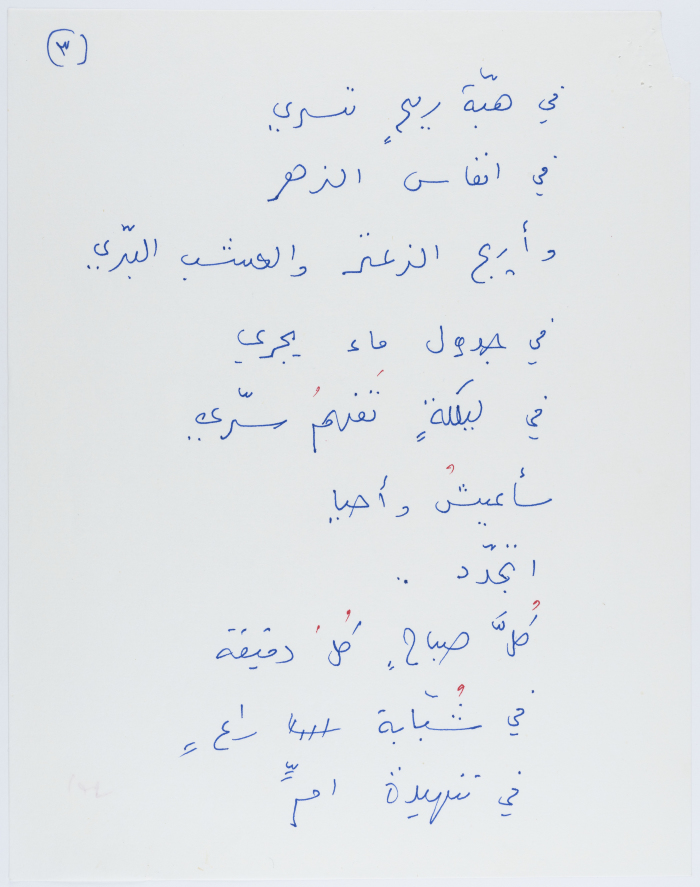 (٣)
في هبّة ريحٍ تسري
في انفاس الزهر
وأريج الزعتر والعشب البرّي
في جدول ماء يجري
في ليلكةٍ تَفهمُ سرّي
سأعيشُ وأحيا
اتجدّد ..
كُلَّ صباحٍ كُل دقيقة
في شُبّابة راعٍ
في تنهيدة امٍّ